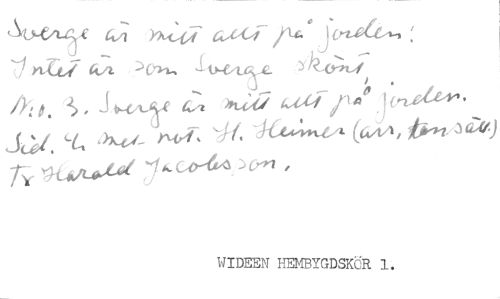 Sverge är mitt allt på jorden!
Intet är som Sverge skönt,
N:o. 3. Sverge är mitt allt på jorden.
Sid. 4. met not. H. Heimer (arr, tonsätt.)
Tx Harald Jacobsson.
WIDEEN HEMBYGDSKÖR 1.